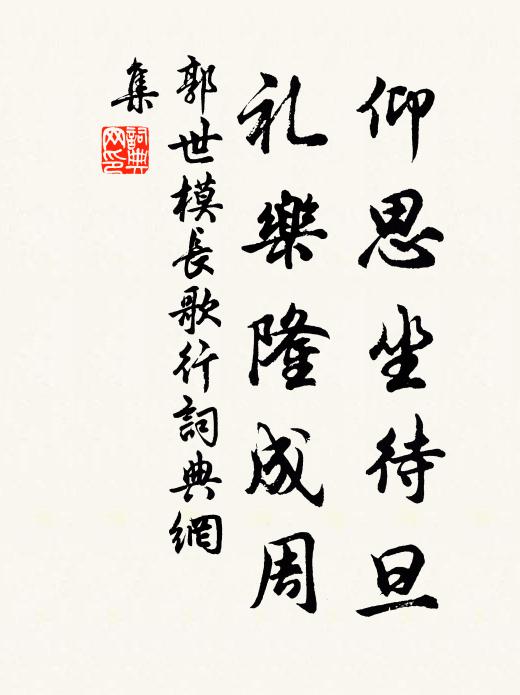 仰思坐待旦
礼樂隆成周
郭世模長歌行詞典網
集
詞典
网印